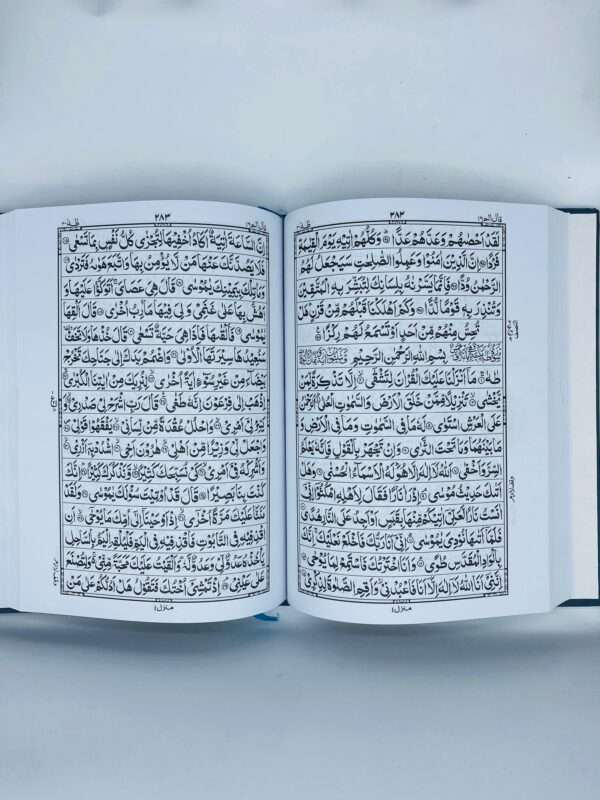 ٣٨٣
لَقَدْ اَحْصٰىهُمْ وَعَدَّهُمْ عَدًّا ۞ وَكُلُّهُمْ اٰتِيْهِ يَوْمَ الْقِيٰمَةِ
فَرْدًا ۞ اِنَّ الَّذِيْنَ اٰمَنُوْا وَعَمِلُوا الصّٰلِحٰتِ سَيَجْعَلُ لَهُمُ
الرَّحْمٰنُ وُدًّا ۞ فَاِنَّمَا يَسَّرْنٰهُ بِلِسَانِكَ لِتُبَشِّرَ بِهِ الْمُتَّقِيْنَ
وَتُنْذِرَ بِهٖ قَوْمًا لُّدًّا ۞ وَكَمْ اَهْلَكْنَا قَبْلَهُمْ مِّنْ قَرْنٍ هَلْ
تُحِسُّ مِنْهُمْ مِّنْ اَحَدٍ اَوْ تَسْمَعُ لَهُمْ رِكْزًا ۞
بِسْمِ اللّٰهِ الرَّحْمٰنِ الرَّحِيْمِ
طٰهٰ ۞ مَآ اَنْزَلْنَا عَلَيْكَ الْقُرْاٰنَ لِتَشْقٰٓى ۞ اِلَّا تَذْكِرَةً لِّمَنْ
يَّخْشٰى ۞ تَنْزِيْلًا مِّمَّنْ خَلَقَ الْاَرْضَ وَالسَّمٰوٰتِ الْعُلٰى ۞ اَلرَّحْمٰنُ
عَلَى الْعَرْشِ اسْتَوٰى ۞ لَهٗ مَا فِى السَّمٰوٰتِ وَمَا فِى الْاَرْضِ وَ
مَا بَيْنَهُمَا وَمَا تَحْتَ الثَّرٰى ۞ وَاِنْ تَجْهَرْ بِالْقَوْلِ فَاِنَّهٗ يَعْلَمُ
السِّرَّ وَاَخْفٰى ۞ اَللّٰهُ لَآ اِلٰهَ اِلَّا هُوَ ؕ لَهُ الْاَسْمَآءُ الْحُسْنٰى ۞ وَهَلْ
اَتٰىكَ حَدِيْثُ مُوْسٰى ۞ اِذْ رَاٰ نَارًا فَقَالَ لِاَهْلِهِ امْكُثُوْٓا اِنِّىْٓ
اٰنَسْتُ نَارًا لَّعَلِّىْٓ اٰتِيْكُمْ مِّنْهَا بِقَبَسٍ اَوْ اَجِدُ عَلَى النَّارِ هُدًى ۞
فَلَمَّآ اَتٰىهَا نُوْدِىَ يٰمُوْسٰى ۞ اِنِّىْٓ اَنَا رَبُّكَ فَاخْلَعْ نَعْلَيْكَ ۚ اِنَّكَ
بِالْوَادِ الْمُقَدَّسِ طُوًى ۞ وَاَنَا اخْتَرْتُكَ فَاسْتَمِعْ لِمَا يُوْحٰى ۞
اِنَّنِىْٓ اَنَا اللّٰهُ لَآ اِلٰهَ اِلَّآ اَنَا فَاعْبُدْنِىْ ۙ وَاَقِمِ الصَّلٰوةَ لِذِكْرِىْ ۞
منزل ٤
اِنَّ السَّاعَةَ اٰتِيَةٌ اَكَادُ اُخْفِيْهَا لِتُجْزٰى كُلُّ نَفْسٍۢ بِمَا تَسْعٰى ۞
فَلَا يَصُدَّنَّكَ عَنْهَا مَنْ لَّا يُؤْمِنُ بِهَا وَاتَّبَعَ هَوٰىهُ فَتَرْدٰى ۞
وَمَا تِلْكَ بِيَمِيْنِكَ يٰمُوْسٰى ۞ قَالَ هِىَ عَصَاىَ ۚ اَتَوَكَّؤُا عَلَيْهَا وَ
اَهُشُّ بِهَا عَلٰى غَنَمِىْ وَلِىَ فِيْهَا مَاٰرِبُ اُخْرٰى ۞ قَالَ اَلْقِهَا
يٰمُوْسٰى ۞ فَاَلْقٰىهَا فَاِذَا هِىَ حَيَّةٌ تَسْعٰى ۞ قَالَ خُذْهَا وَلَا تَخَفْ
سَنُعِيْدُهَا سِيْرَتَهَا الْاُوْلٰى ۞ وَاضْمُمْ يَدَكَ اِلٰى جَنَاحِكَ تَخْرُجْ
بَيْضَآءَ مِنْ غَيْرِ سُوْٓءٍ اٰيَةً اُخْرٰى ۞ لِنُرِيَكَ مِنْ اٰيٰتِنَا الْكُبْرٰى ۞
اِذْهَبْ اِلٰى فِرْعَوْنَ اِنَّهٗ طَغٰى ۞ قَالَ رَبِّ اشْرَحْ لِىْ صَدْرِىْ ۞ وَ
يَسِّرْ لِىْٓ اَمْرِىْ ۞ وَاحْلُلْ عُقْدَةً مِّنْ لِّسَانِىْ ۞ يَفْقَهُوْا قَوْلِىْ ۞
وَاجْعَلْ لِّىْ وَزِيْرًا مِّنْ اَهْلِىْ ۞ هٰرُوْنَ اَخِى ۞ اشْدُدْ بِهٖٓ اَزْرِىْ ۞
وَاَشْرِكْهُ فِىْٓ اَمْرِىْ ۞ كَىْ نُسَبِّحَكَ كَثِيْرًا ۞ وَّنَذْكُرَكَ كَثِيْرًا ۞ اِنَّكَ
كُنْتَ بِنَا بَصِيْرًا ۞ قَالَ قَدْ اُوْتِيْتَ سُؤْلَكَ يٰمُوْسٰى ۞ وَلَقَدْ
مَنَنَّا عَلَيْكَ مَرَّةً اُخْرٰٓى ۞ اِذْ اَوْحَيْنَآ اِلٰٓى اُمِّكَ مَا يُوْحٰٓى ۞ اَنِ
اقْذِفِيْهِ فِى التَّابُوْتِ فَاقْذِفِيْهِ فِى الْيَمِّ فَلْيُلْقِهِ الْيَمُّ بِالسَّاحِلِ
يَاْخُذْهُ عَدُوٌّ لِّىْ وَعَدُوٌّ لَّهٗ ؕ وَاَلْقَيْتُ عَلَيْكَ مَحَبَّةً مِّنِّىْ ۚ وَلِتُصْنَعَ
عَلٰى عَيْنِىْ ۞ اِذْ تَمْشِىْٓ اُخْتُكَ فَتَقُوْلُ هَلْ اَدُلُّكُمْ عَلٰى مَنْ
منزل ٤